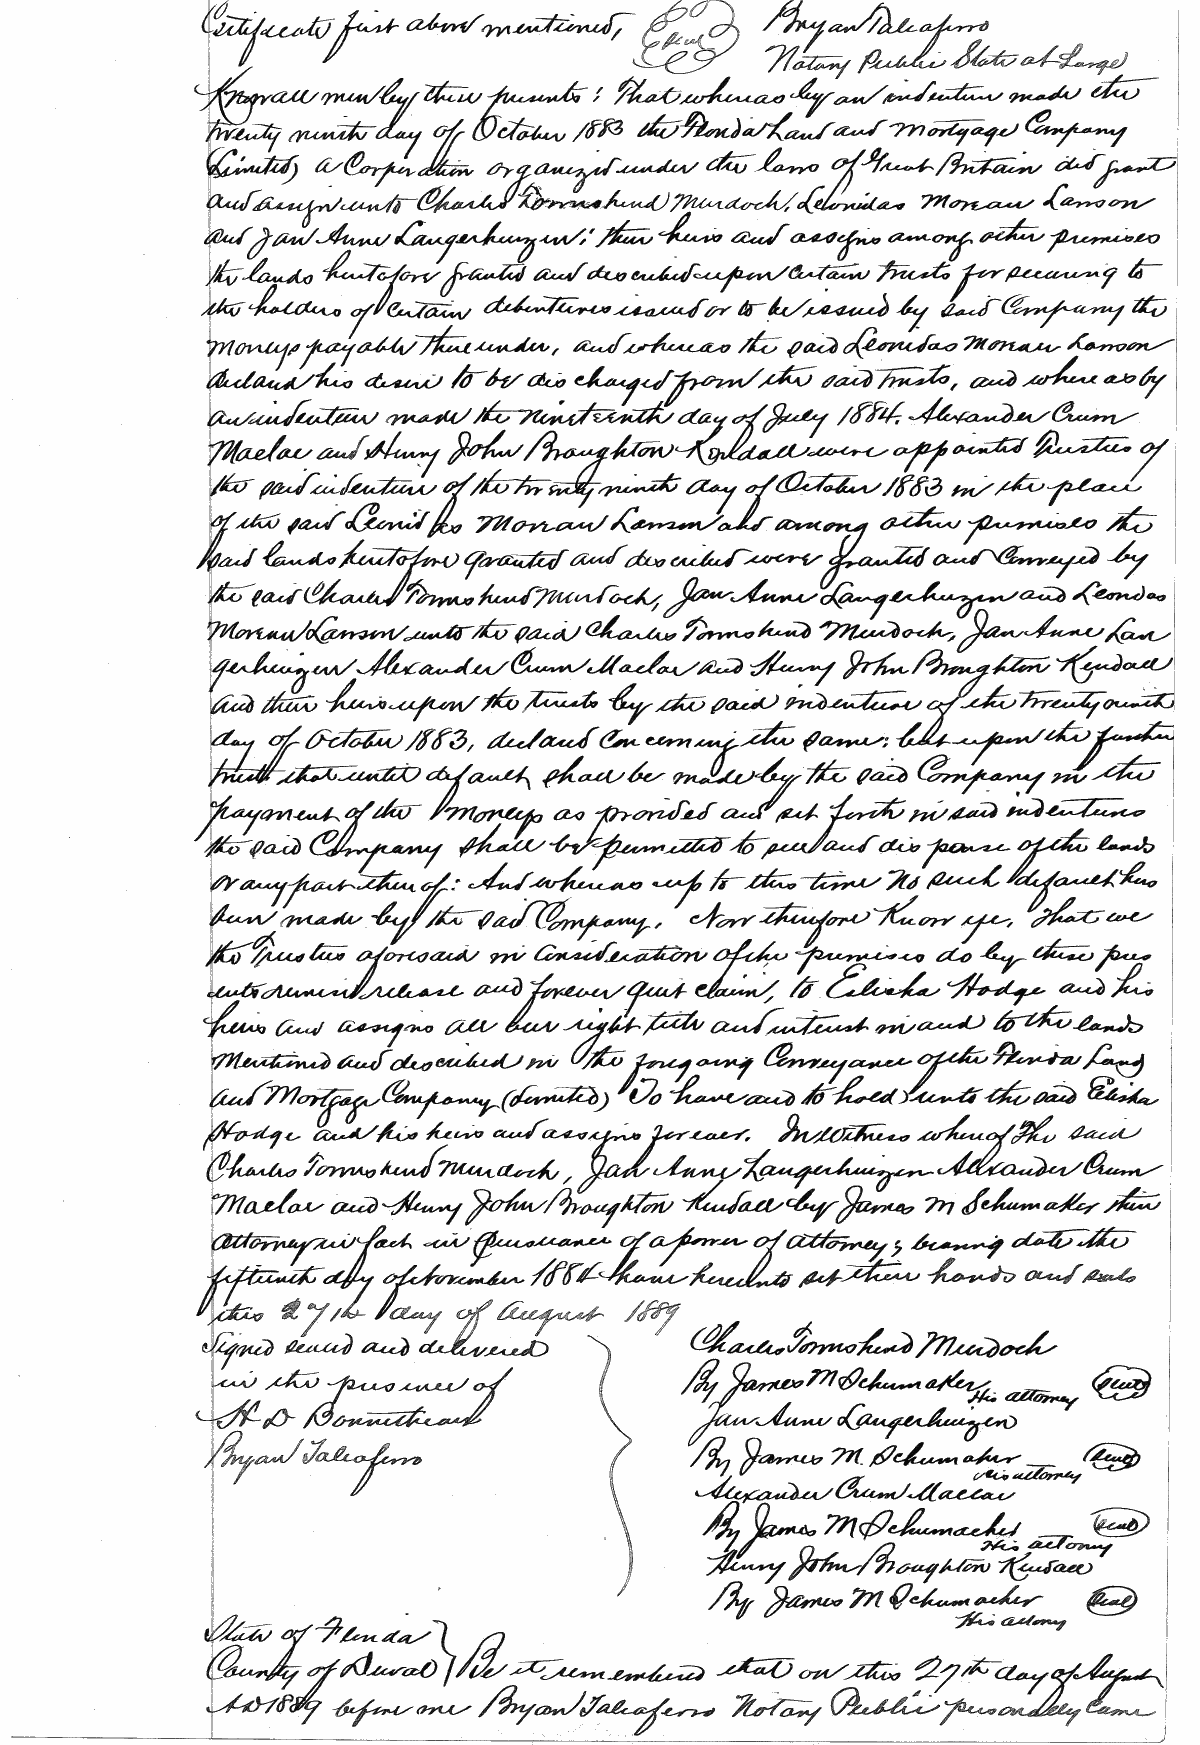 Certificate first above mentioned, Seal Bryan Taliaferro
Notary Public State at Large
Know all men by these presents: That whereas by an indenture made the
twenty ninth day of October 1883 the Florida Land and Mortgage Company
(Limited) a Corporation organized under the laws of Great Britain did grant
and assign unto Charles Townshend Murdoch, Leonidas Moreau Lawson
and Jan Anne Langerhuizen; their heirs and assigns among other premises
the lands heretofore granted and described upon certain trusts for securing to
the holders of certain debentures issued or to be issued by said Company the
moneys payable thereunder, and whereas the said Leonidas Moreau Lawson
declared his desire to be discharged from the said trusts, and whereas by
an indenture made the Nineteenth day of July 1884. Alexander Crum
Maclae and Henry John Broughton Kendall were appointed Trustees of
the said indenture of the twenty ninth day of October 1883 in the place
of the said Leonidas Moreau Lawson and among other premises the
said lands heretofore granted and described were granted and conveyed by
the said Charles Townshend Murdoch, Jan Anne Langerhuizen and Leonidas
Moreau Lawson unto the said Charles Townshend Murdoch, Jan Anne Lan
gerhuizen Alexander Crum Maclae and Henry John Broughton Kendall
and their heirs upon the trusts by the said indenture of the twenty ninth
day of October 1883, declared concerning the same; but upon the further
trust that until default shall be made by the said Company in the
payment of the moneys as provided and set forth in said indentures
the said Company shall be permitted to sell and dispose of the lands
or any part thereof: And whereas up to this time no such default has
been made by the said Company. Now therefore Know ye, That we
the Trustees aforesaid in consideration of the premises do by these pres
ents remise release and forever quit claim, to Elisha Hodge and his
heirs and assigns all our right title and interest in and to the lands
mentioned and described in the foregoing Conveyance of the Florida Land
and Mortgage Company (Limited) To have and to hold unto the said Elisha
Hodge and his heirs and assigns forever. In Witness whereof The said
Charles Townshend Murdoch, Jan Anne Langerhuizen Alexander Crum
Maclae and Henry John Broughton Kendall by James M Schumaker their
attorney in fact in pursuance of a power of attorney, bearing date the
fifteenth day of November 1884 have hereunto set their hands and seals
this 27th day of August 1889
Signed sealed and delivered
in the presence of
H D Bonnetheau
Bryan Taliaferro
Charles Townshend Murdoch
By James M Schumaker Seal
His attorney
Jan Anne Langerhuizen
By James M. Schumaker Seal
His attorney
Alexander Crum Maclae
By James M Schumacher Seal
His attorney
Henry John Broughton Kendall
By James M Schumacher Seal
His attorney
State of Florida
County of Duval Be it remembered that on this 27th day of August
AD 1889 before me Bryan Taliaferro Notary Public personally came